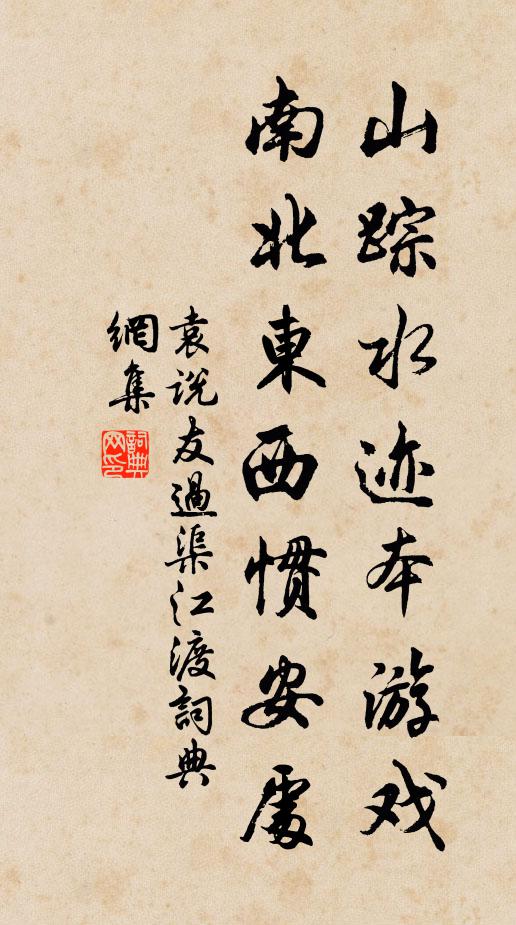 山踪水迹本游戏
南北東西惯安處
袁说友過渠江渡詞典
網集
詞典网印